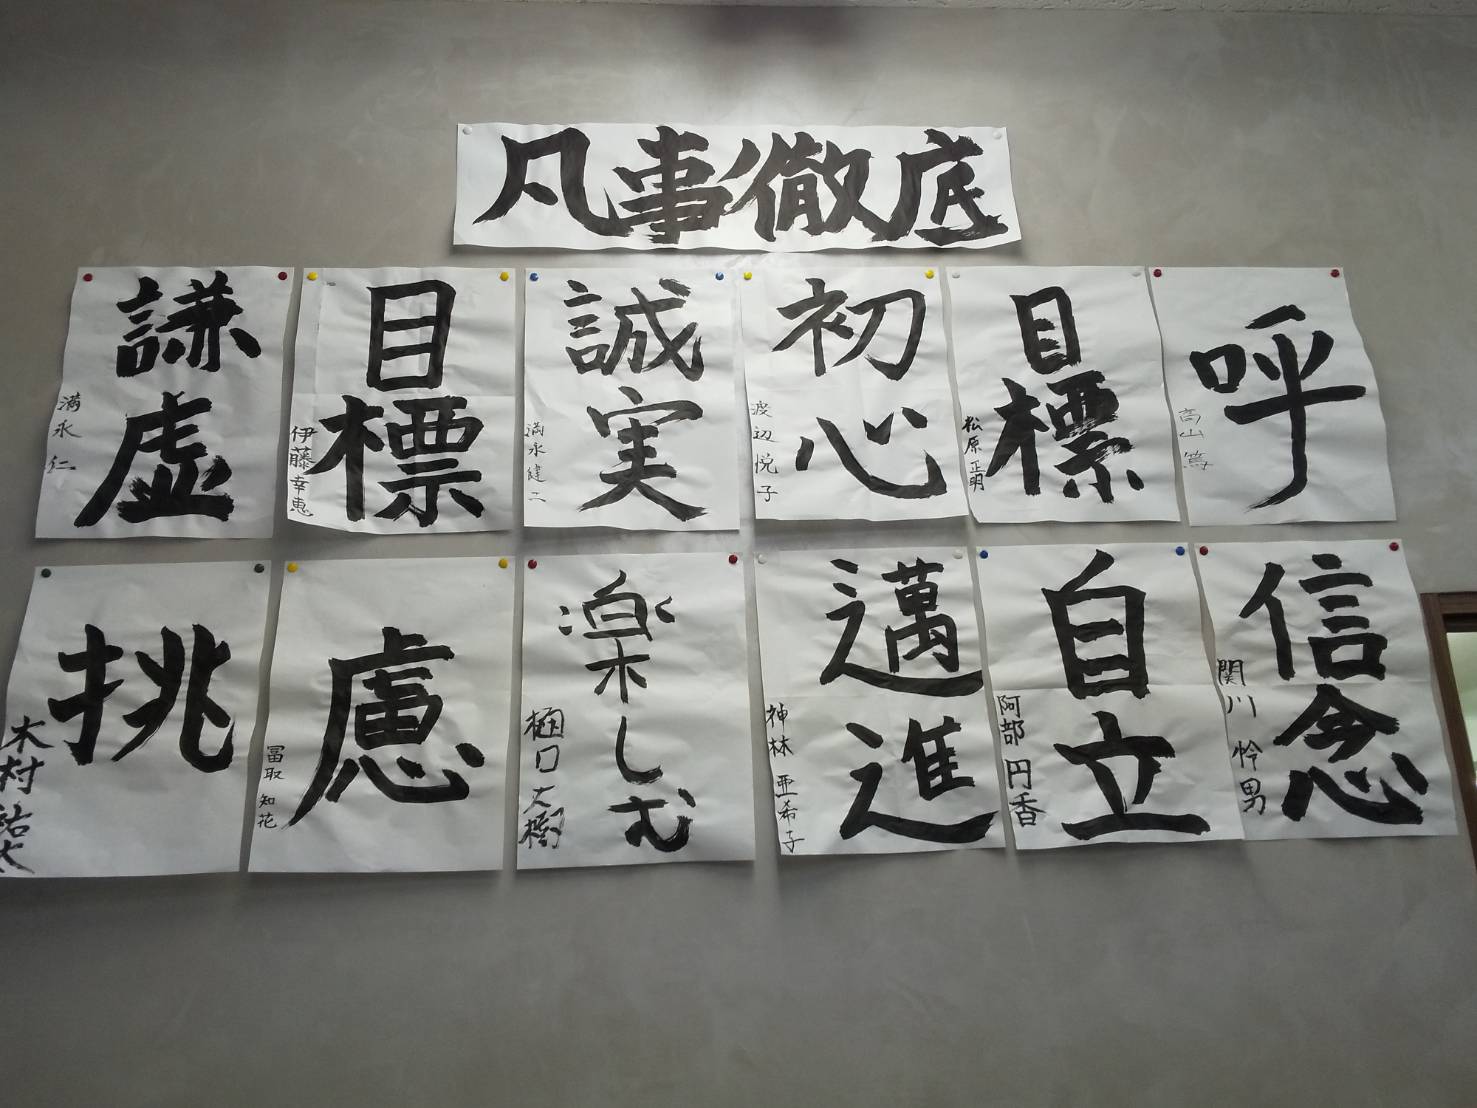 凡事徹底
謙虚
満永 仁
目標
伊藤幸恵
誠実
満永健二
初心
渡辺悦子
目標
松原正明
呼
高山 篤
挑
木村祐太
慮
冨取知花
楽しむ
樋口大樹
邁進
神林亜希子
自立
阿部円香
信念
関川怜男